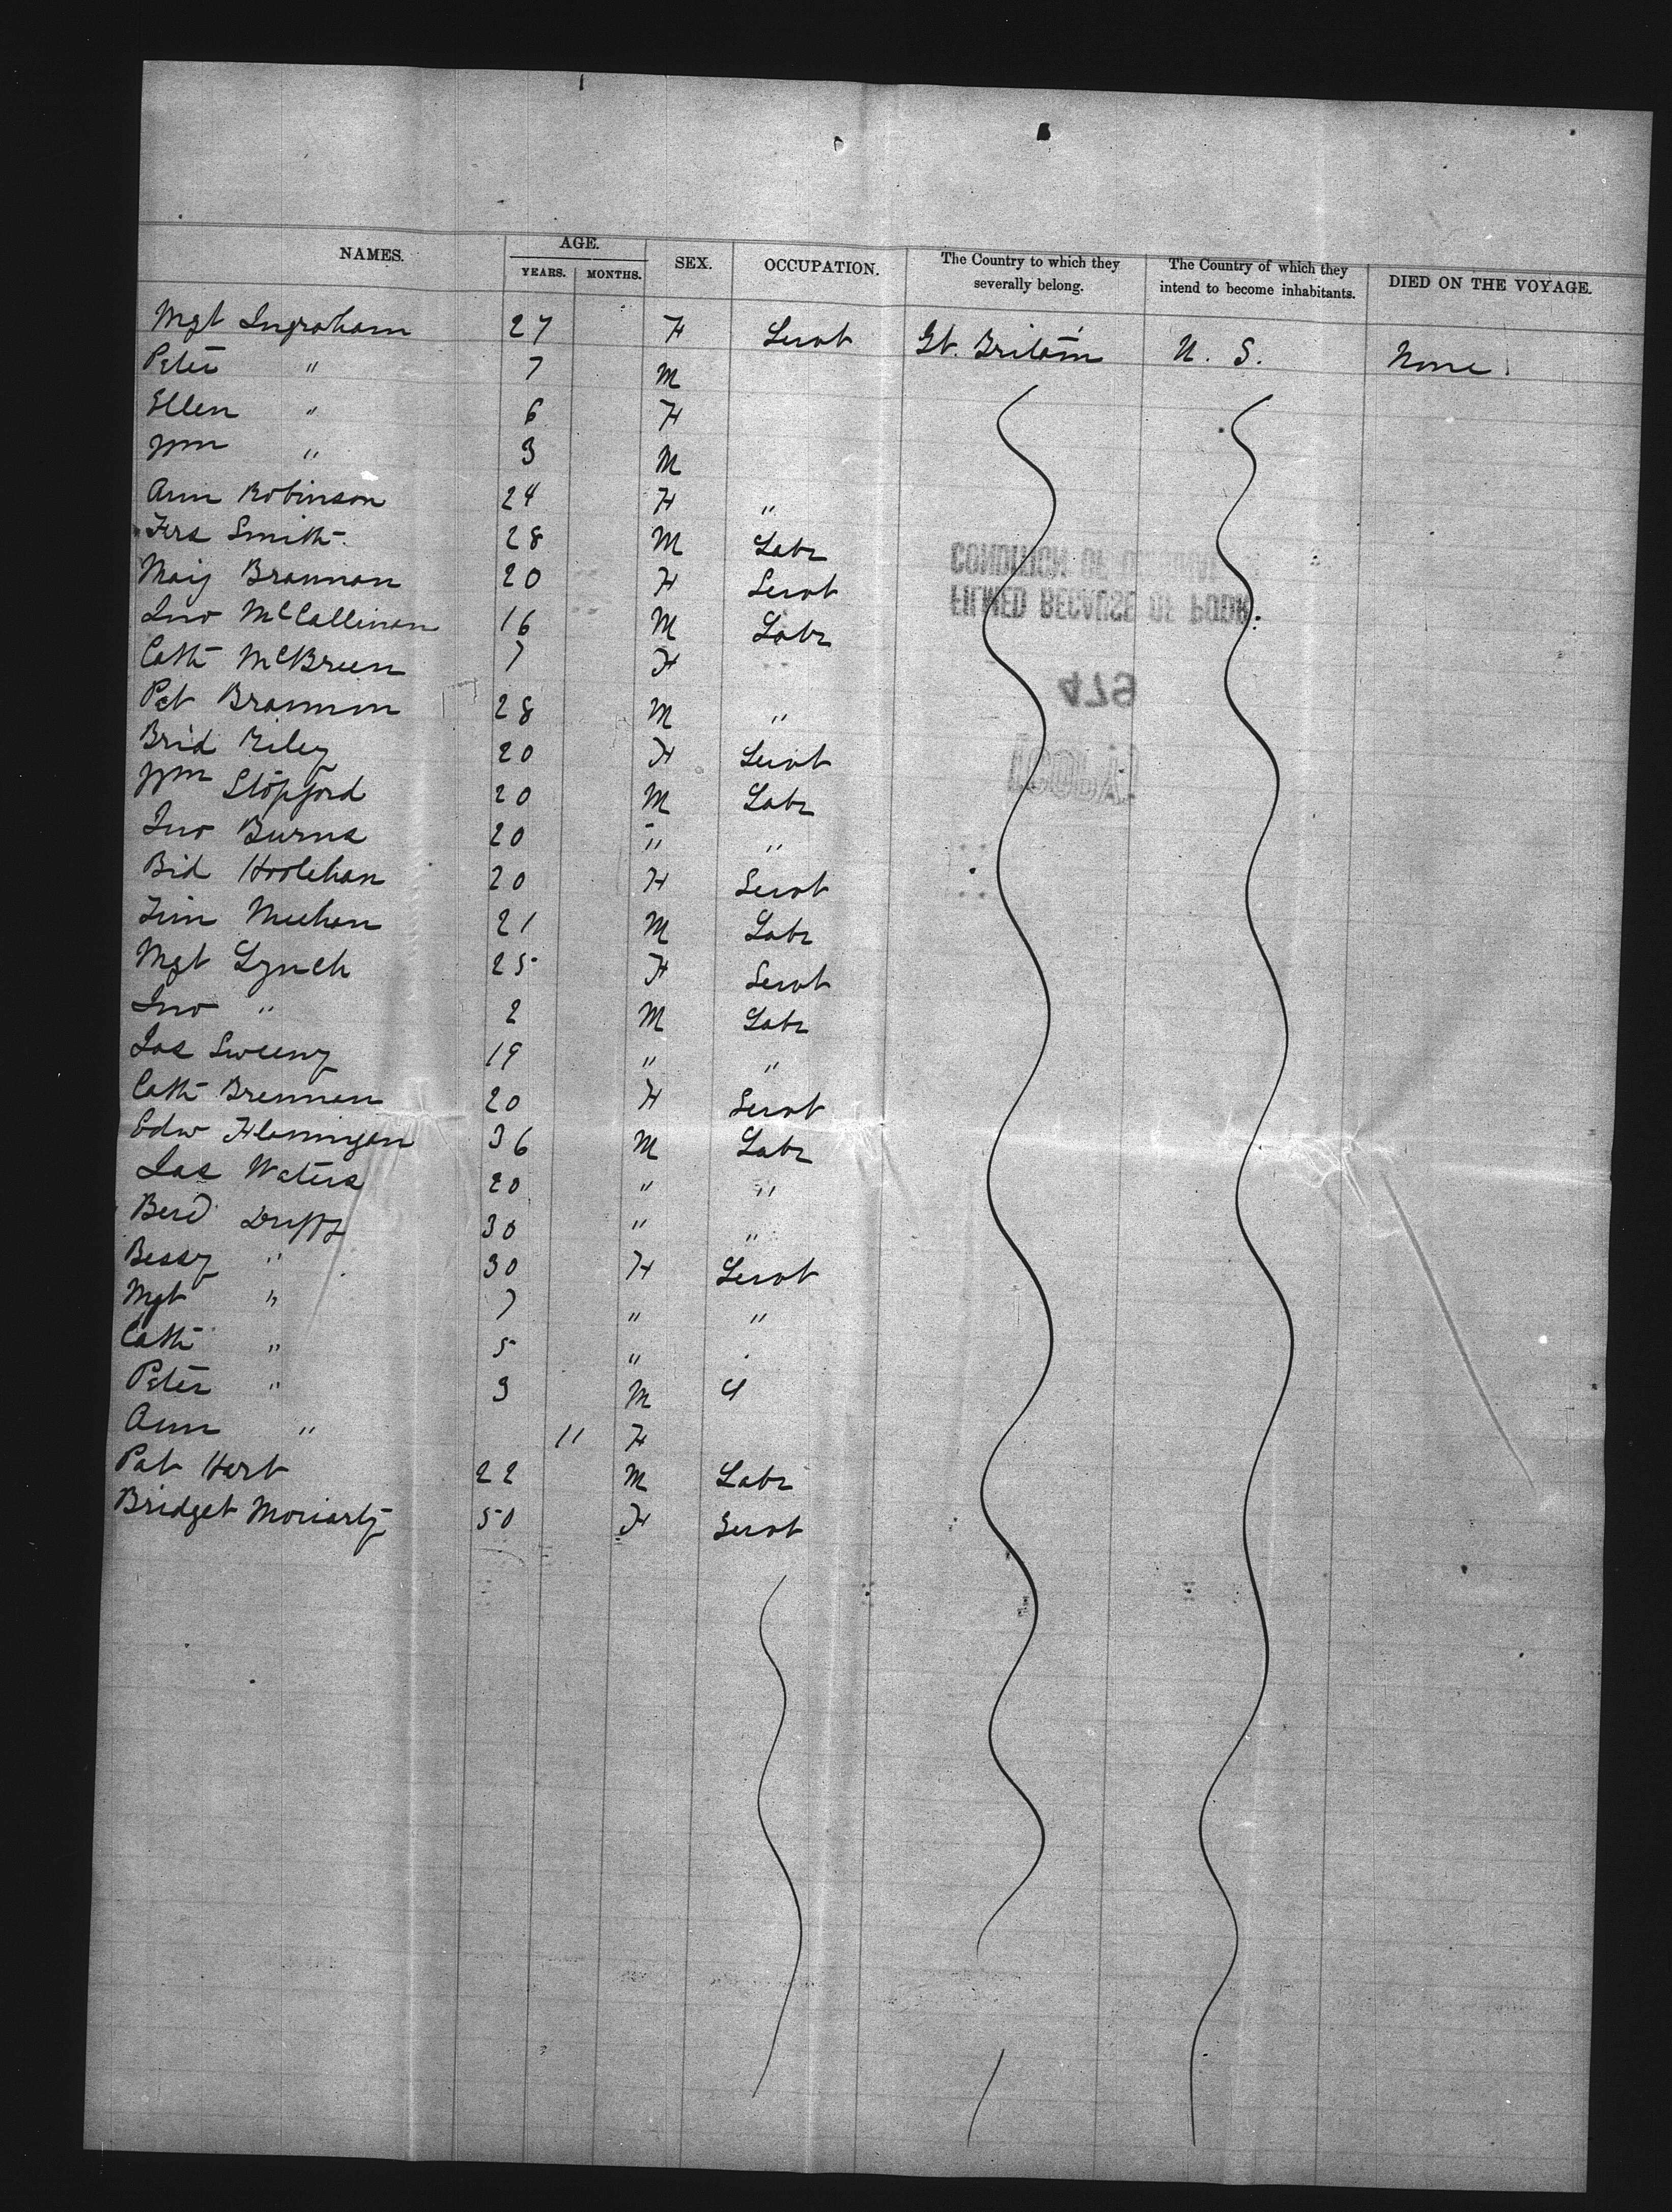 NAMES. AGE. YEARS. MONTHS. SEX. OCCUPATION. The Country to which they severally belong. The Country of which they intend to become inhabitants. DIED ON THE VOYAGE.
Mgt Ingraham 27 F Servt Gt. Britain U. S. None.
Peter " 7 M
Ellen " 6 F
Wm " 3 M
Ann Robinson 24 F "
Frs Smith 28 M Labr
Brannan 20 F Servt
Jno McCallinan 16 M Labr
Cath McBrien 7 F
Pat Brannan 28 M "
Brid Riley 20 F Servt
Wm Stopford 20 M Labr
Jno Burns 20 " "
Bid Hoolehan 20 F Servt
Tim Meehan 21 M Labr
Mgt Lynch 25 F Servt
Jno " 2 M Labr
Jas Sweeny 19 " "
Cath Brennan 20 F Servt
Edw Flannigan 36 M Labr
Jas Waters 20 " "
Bern Duffy 30 " "
Bessy " 30 F Servt
Mgt " 7 " "
Cath " 5 "
Peter " 3 M
Ann " 11 F
Pat Hart 22 M Labr
Bridget Moriarty 50 F Servt
FILMED BECAUSE OF POOR
CONDITION OF
479